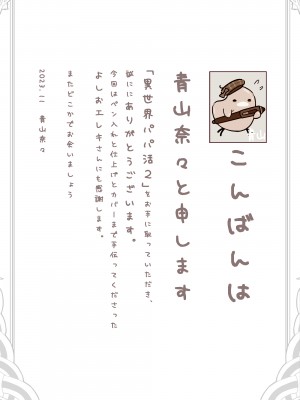 こんばんは
青山奈々と申します
「異世界パパ活2」をお手に取っていただき、
誠にありがとうございます。
今回はペン入れと仕上げとカバーまで手伝ってくださった
よしおエレキさんにも感謝します。
またどこかでお会いしましょう
2023.11 青山奈々
青山